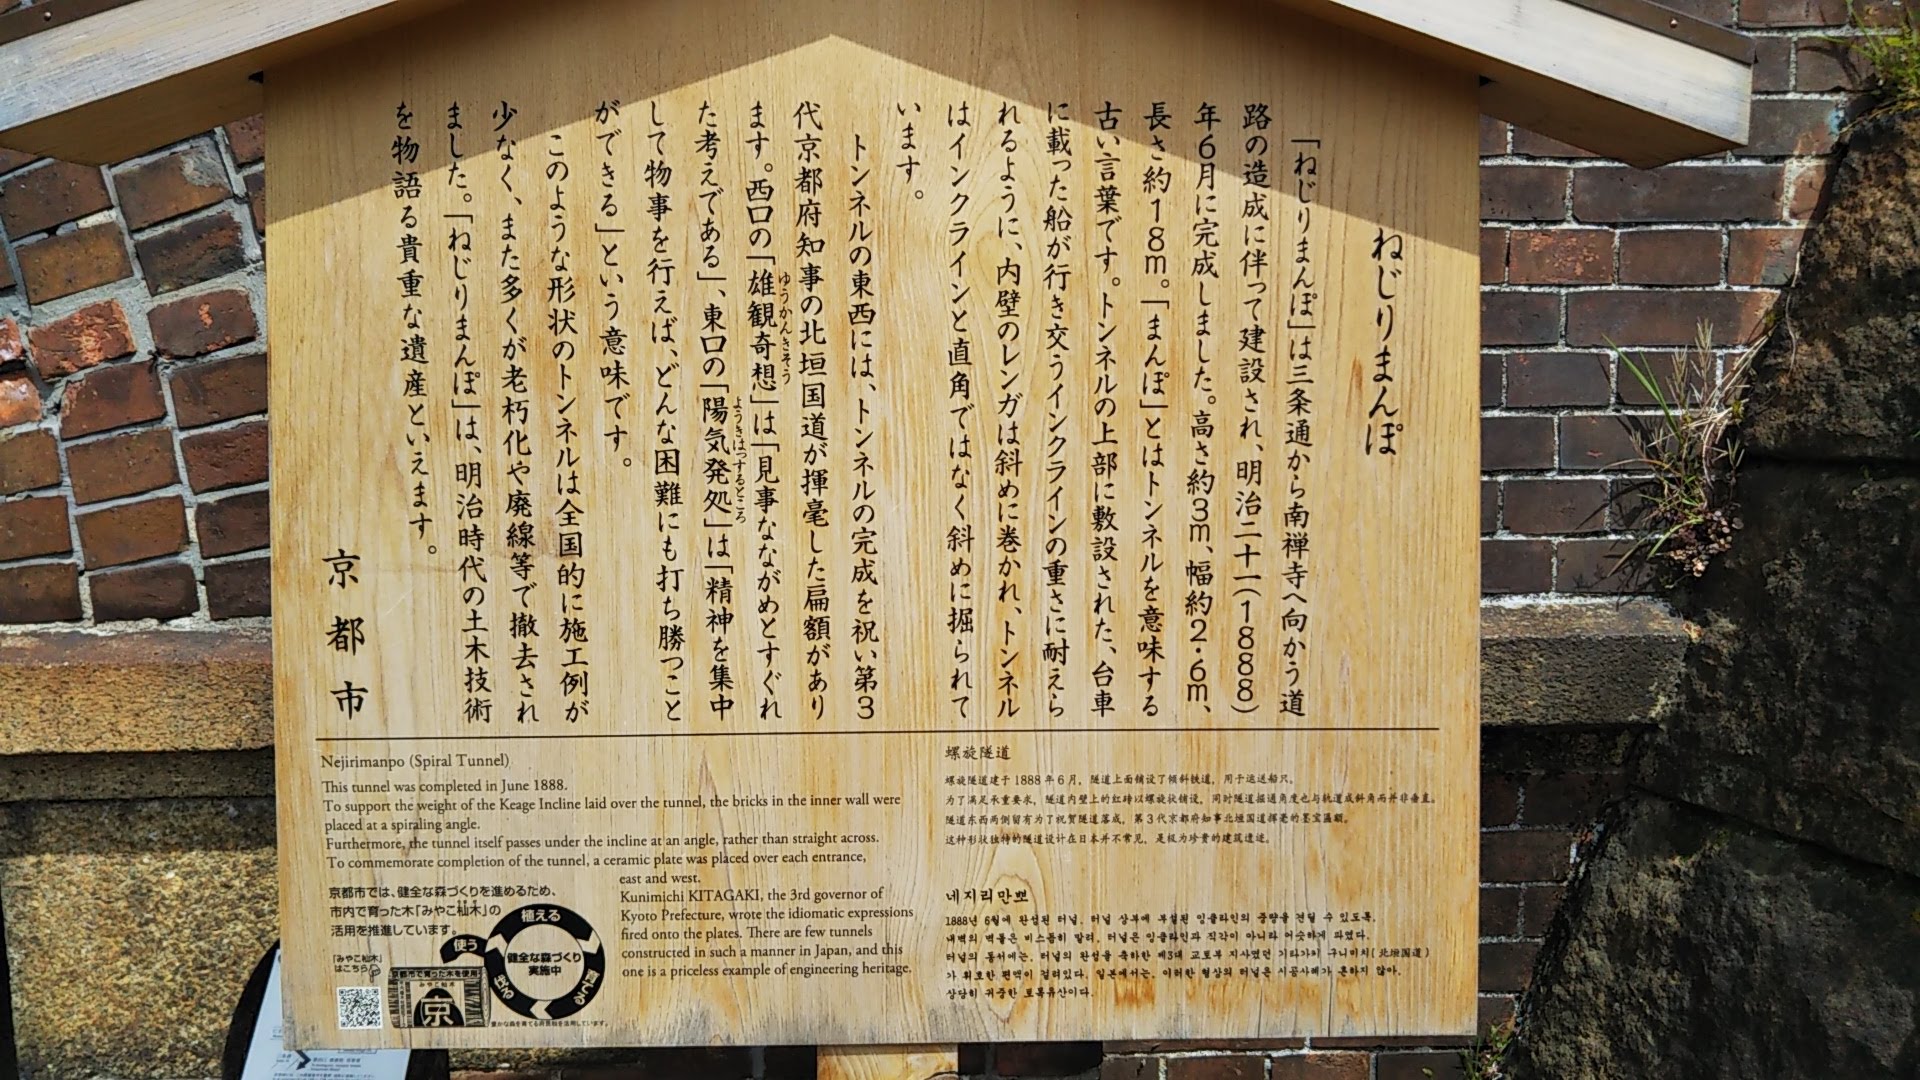 ねじりまんぽ
「ねじりまんぽ」は三条通から南禅寺へ向かう道
路の造成に伴って建設され、明治二十一(1888)
年6月に完成しました。高さ約3m、幅約2・6m、
長さ約18m。「まんぽ」とはトンネルを意味する
古い言葉です。トンネルの上部に敷設された、台車
に載った船が行き交うインクラインの重さに耐えら
れるように、内壁のレンガは斜めに巻かれ、トンネル
はインクラインと直角ではなく斜めに掘られて
います。
トンネルの東西には、トンネルの完成を祝い第3
代京都府知事の北垣国道が揮毫した扁額があり
ます。西口の「雄観奇想」は「見事なながめとすぐれ
ゆうかんきそう
た考えである」、東口の「陽気発処」は「精神を集中
ようきはっするところ
して物事を行えば、どんな困難にも打ち勝つこと
ができる」という意味です。
このような形状のトンネルは全国的に施工例が
少なく、また多くが老朽化や廃線等で撤去され
ました。「ねじりまんぽ」は、明治時代の土木技術
を物語る貴重な遺産といえます。
京都市
Nejirimanpo (Spiral Tunnel)
This tunnel was completed in June 1888.
To support the weight of the Keage Incline laid over the tunnel, the bricks in the inner wall were
placed at a spiraling angle.
Furthermore, the tunnel itself passes under the incline at an angle, rather than straight across.
To commemorate completion of the tunnel, a ceramic plate was placed over each entrance,
east and west.
Kunimichi KITAGAKI, the 3rd governor of
Kyoto Prefecture, wrote the idiomatic expressions
fired onto the plates. There are few tunnels
constructed in such a manner in Japan, and this
one is a priceless example of engineering heritage.
京都市では、健全な森づくりを進めるため、
市内で育った木「みやこ杣木」の
活用を推進しています。
「みやこ杣木」
はこちら
植える
育てる
伐る
使う
健全な森づくり
実施中
京都市で育った木を使用
みやこ杣木
京
豊かな森を育てる府民税を活用しています。
螺旋隧道
螺旋隧道建于1888年6月，隧道上面铺设了倾斜铁道，用于运送船只。
为了满足承重要求，隧道内壁上的红砖以螺旋状铺设，同时隧道掘通角度也与轨道成斜角而并非垂直。
隧道东西两侧留有为了祝贺隧道落成，第3代京都府知事北垣国道挥毫的墨宝匾额。
这种形状独特的隧道设计在日本并不常见，是极为珍贵的建筑遗迹。
네지리만뽀
1888년 6월에 완성된 터널. 터널 상부에 부설된 인클라인의 중량을 견딜 수 있도록,
내벽의 벽돌은 비스듬히 말려, 터널은 인클라인과 직각이 아니라 어슷하게 파였다.
터널의 동서에는, 터널의 완성을 축하한 제3대 교토부 지사였던 기타가키 구니미치(北垣国道)
가 휘호한 편액이 걸려있다. 일본에서는, 이러한 형상의 터널은 시공사례가 흔하지 않아,
상당히 귀중한 토목유산이다.